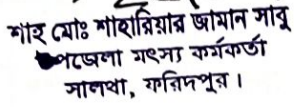 শাহ মোঃ শাহারিয়ার জামান সাবু
উপজেলা মৎস্য কর্মকর্তা
সালথা, ফরিদপুর।